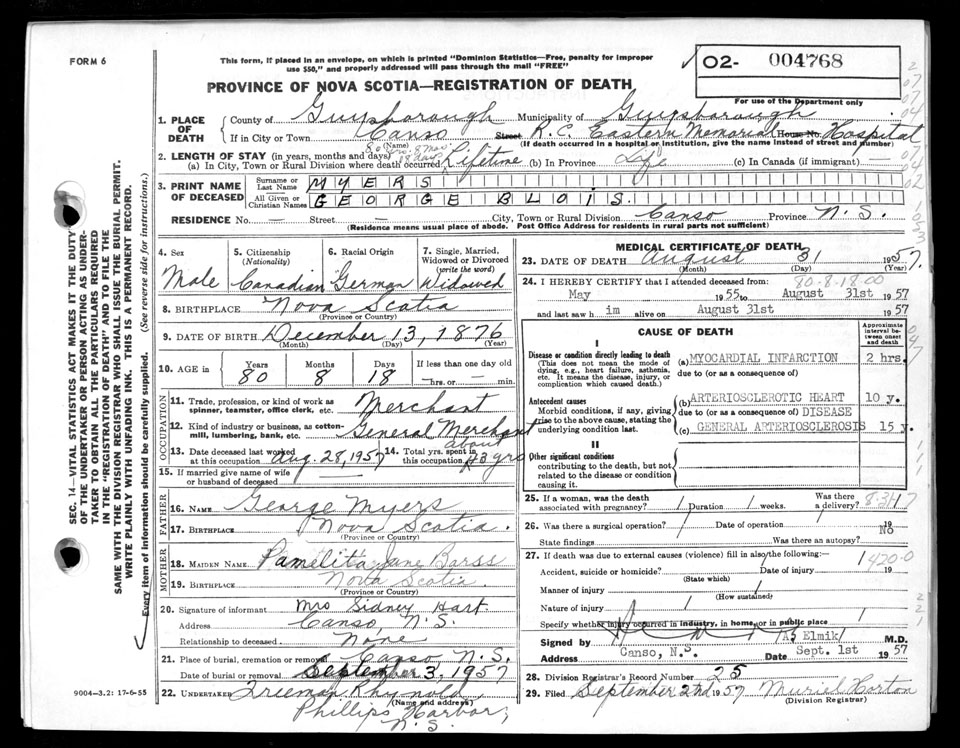 FORM 6
This form, if placed in an envelope, on which is printed "Dominion Statistics—Free, penalty for improper
use $50," and properly addressed will pass through the mail "FREE"
O2- 004768
PROVINCE OF NOVA SCOTIA—REGISTRATION OF DEATH
For use of the Department only
1. PLACE OF DEATH
County of Guysborough Municipality of Guysborough
If in City or Town Canso Street R.C. Eastern Memorial House No. Hospital
(Name) (If death occurred in a hospital or institution, give the name instead of street and number)
2. LENGTH OF STAY (in years, months and days) 80 yrs. 8 mos 18 days
(a) In City, Town or Rural Division where death occurred Lifetime (b) In Province Life (c) In Canada (if immigrant) —
3. PRINT NAME OF DECEASED
Surname or Last Name MYERS
All Given or Christian Names GEORGE BLOIS.
RESIDENCE No. — Street — City, Town or Rural Division Canso Province N.S.
(Residence means usual place of abode. Post Office Address for residents in rural parts not sufficient)
4. Sex 5. Citizenship (Nationality) 6. Racial Origin 7. Single, Married, Widowed or Divorced (write the word)
Male Canadian German Widowed
8. BIRTHPLACE Nova Scotia
(Province or Country)
9. DATE OF BIRTH December 13, 1876
(Month) (Day) (Year)
10. AGE in Years Months Days If less than one day old
80 8 18 — hrs. or — min.
OCCUPATION
11. Trade, profession, or kind of work as
spinner, teamster, office clerk, etc. Merchant
12. Kind of industry or business, as cotton-
mill, lumbering, bank, etc. General Merchant
13. Date deceased last worked at this occupation Aug. 28, 1957 14. Total yrs. spent in this occupation about 43 yrs
15. If married give name of wife
or husband of deceased —
FATHER
16. NAME George Myers
17. BIRTHPLACE Nova Scotia.
(Province or Country)
MOTHER
18. MAIDEN NAME Pamelita Jane Barss
19. BIRTHPLACE Nova Scotia
(Province or Country)
20. Signature of informant Mrs Sidney Hart
Address Canso, N.S.
Relationship to deceased None
21. Place of burial, cremation or removal Canso N.S.
Date of burial or removal September 3, 1957
22. UNDERTAKER Freeman Rhynold,
(Name and address)
Phillips Harbor,
N.S.
MEDICAL CERTIFICATE OF DEATH
23. DATE OF DEATH August 31 1957.
(Month) (Day) (Year)
80-8-18-00
24. I HEREBY CERTIFY that I attended deceased from:
May 1955 to August 31st 1957
and last saw h im alive on August 31st 1957
CAUSE OF DEATH
Approximate interval between onset and death
I
Disease or condition directly leading to death
(This does not mean the mode of dying, e.g., heart failure, asthenia, etc. It means the disease, injury, or complication which caused death.)
(a) MYOCARDIAL INFARCTION 2 hrs.
due to (or as a consequence of)
Antecedent causes
Morbid conditions, if any, giving rise to the above cause, stating the underlying condition last.
(b) ARTERIOSCLEROTIC HEART 10 y.
due to (or as a consequence of) DISEASE
(c) GENERAL ARTERIOSCLEROSIS 15 y.
II
Other significant conditions
contributing to the death, but not related to the disease or condition causing it.
25. If a woman, was the death
associated with pregnancy? / Duration / weeks. Was there a delivery?
26. Was there a surgical operation? / Date of operation / 19
State findings Was there an autopsy? No
27. If death was due to external causes (violence) fill in also the following:—
Accident, suicide or homicide? / Date of injury 19
(State which)
Manner of injury /
(How sustained)
Nature of injury /
Specify whether injury occurred in industry, in home, or in public place /
Signed by /A. Elmik/ M.D.
Address Canso, N.S. Date Sept. 1st 1957
28. Division Registrar's Record Number 25
29. Filed September 2nd 1957 Muriel Horton
(Division Registrar)
SEC. 14—VITAL STATISTICS ACT MAKES IT THE DUTY
OF THE UNDERTAKER OR PERSON ACTING AS UNDER-
TAKER TO OBTAIN ALL THE PARTICULARS REQUIRED
IN THE "REGISTRATION OF DEATH" AND TO FILE THE
SAME WITH THE DIVISION REGISTRAR WHO SHALL ISSUE THE BURIAL PERMIT.
WRITE PLAINLY WITH UNFADING INK. THIS IS A PERMANENT RECORD.
Every item of information should be carefully supplied. (See reverse side for instructions.)
9004-3.2: 17-6-55